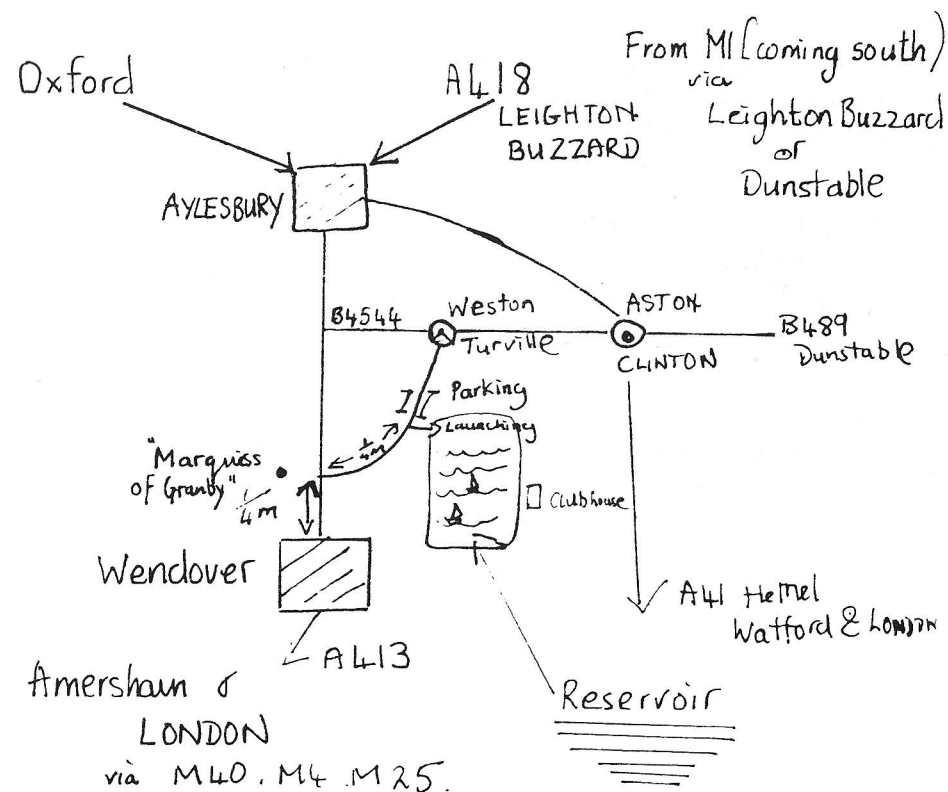 Oxford
A418
LEIGHTON
BUZZARD
From M1 (coming south)
via
Leighton Buzzard
or
Dunstable
AYLESBURY
B4544
Weston
Turville
ASTON
CLINTON
B489
Dunstable
Parking
Launching
1/4m
"Marquiss
of Granby"
1/4m
Clubhouse
Wendover
A413
A41 Hemel
Watford & LONDON
Amersham &
LONDON
via M40. M4. M25.
Reservoir